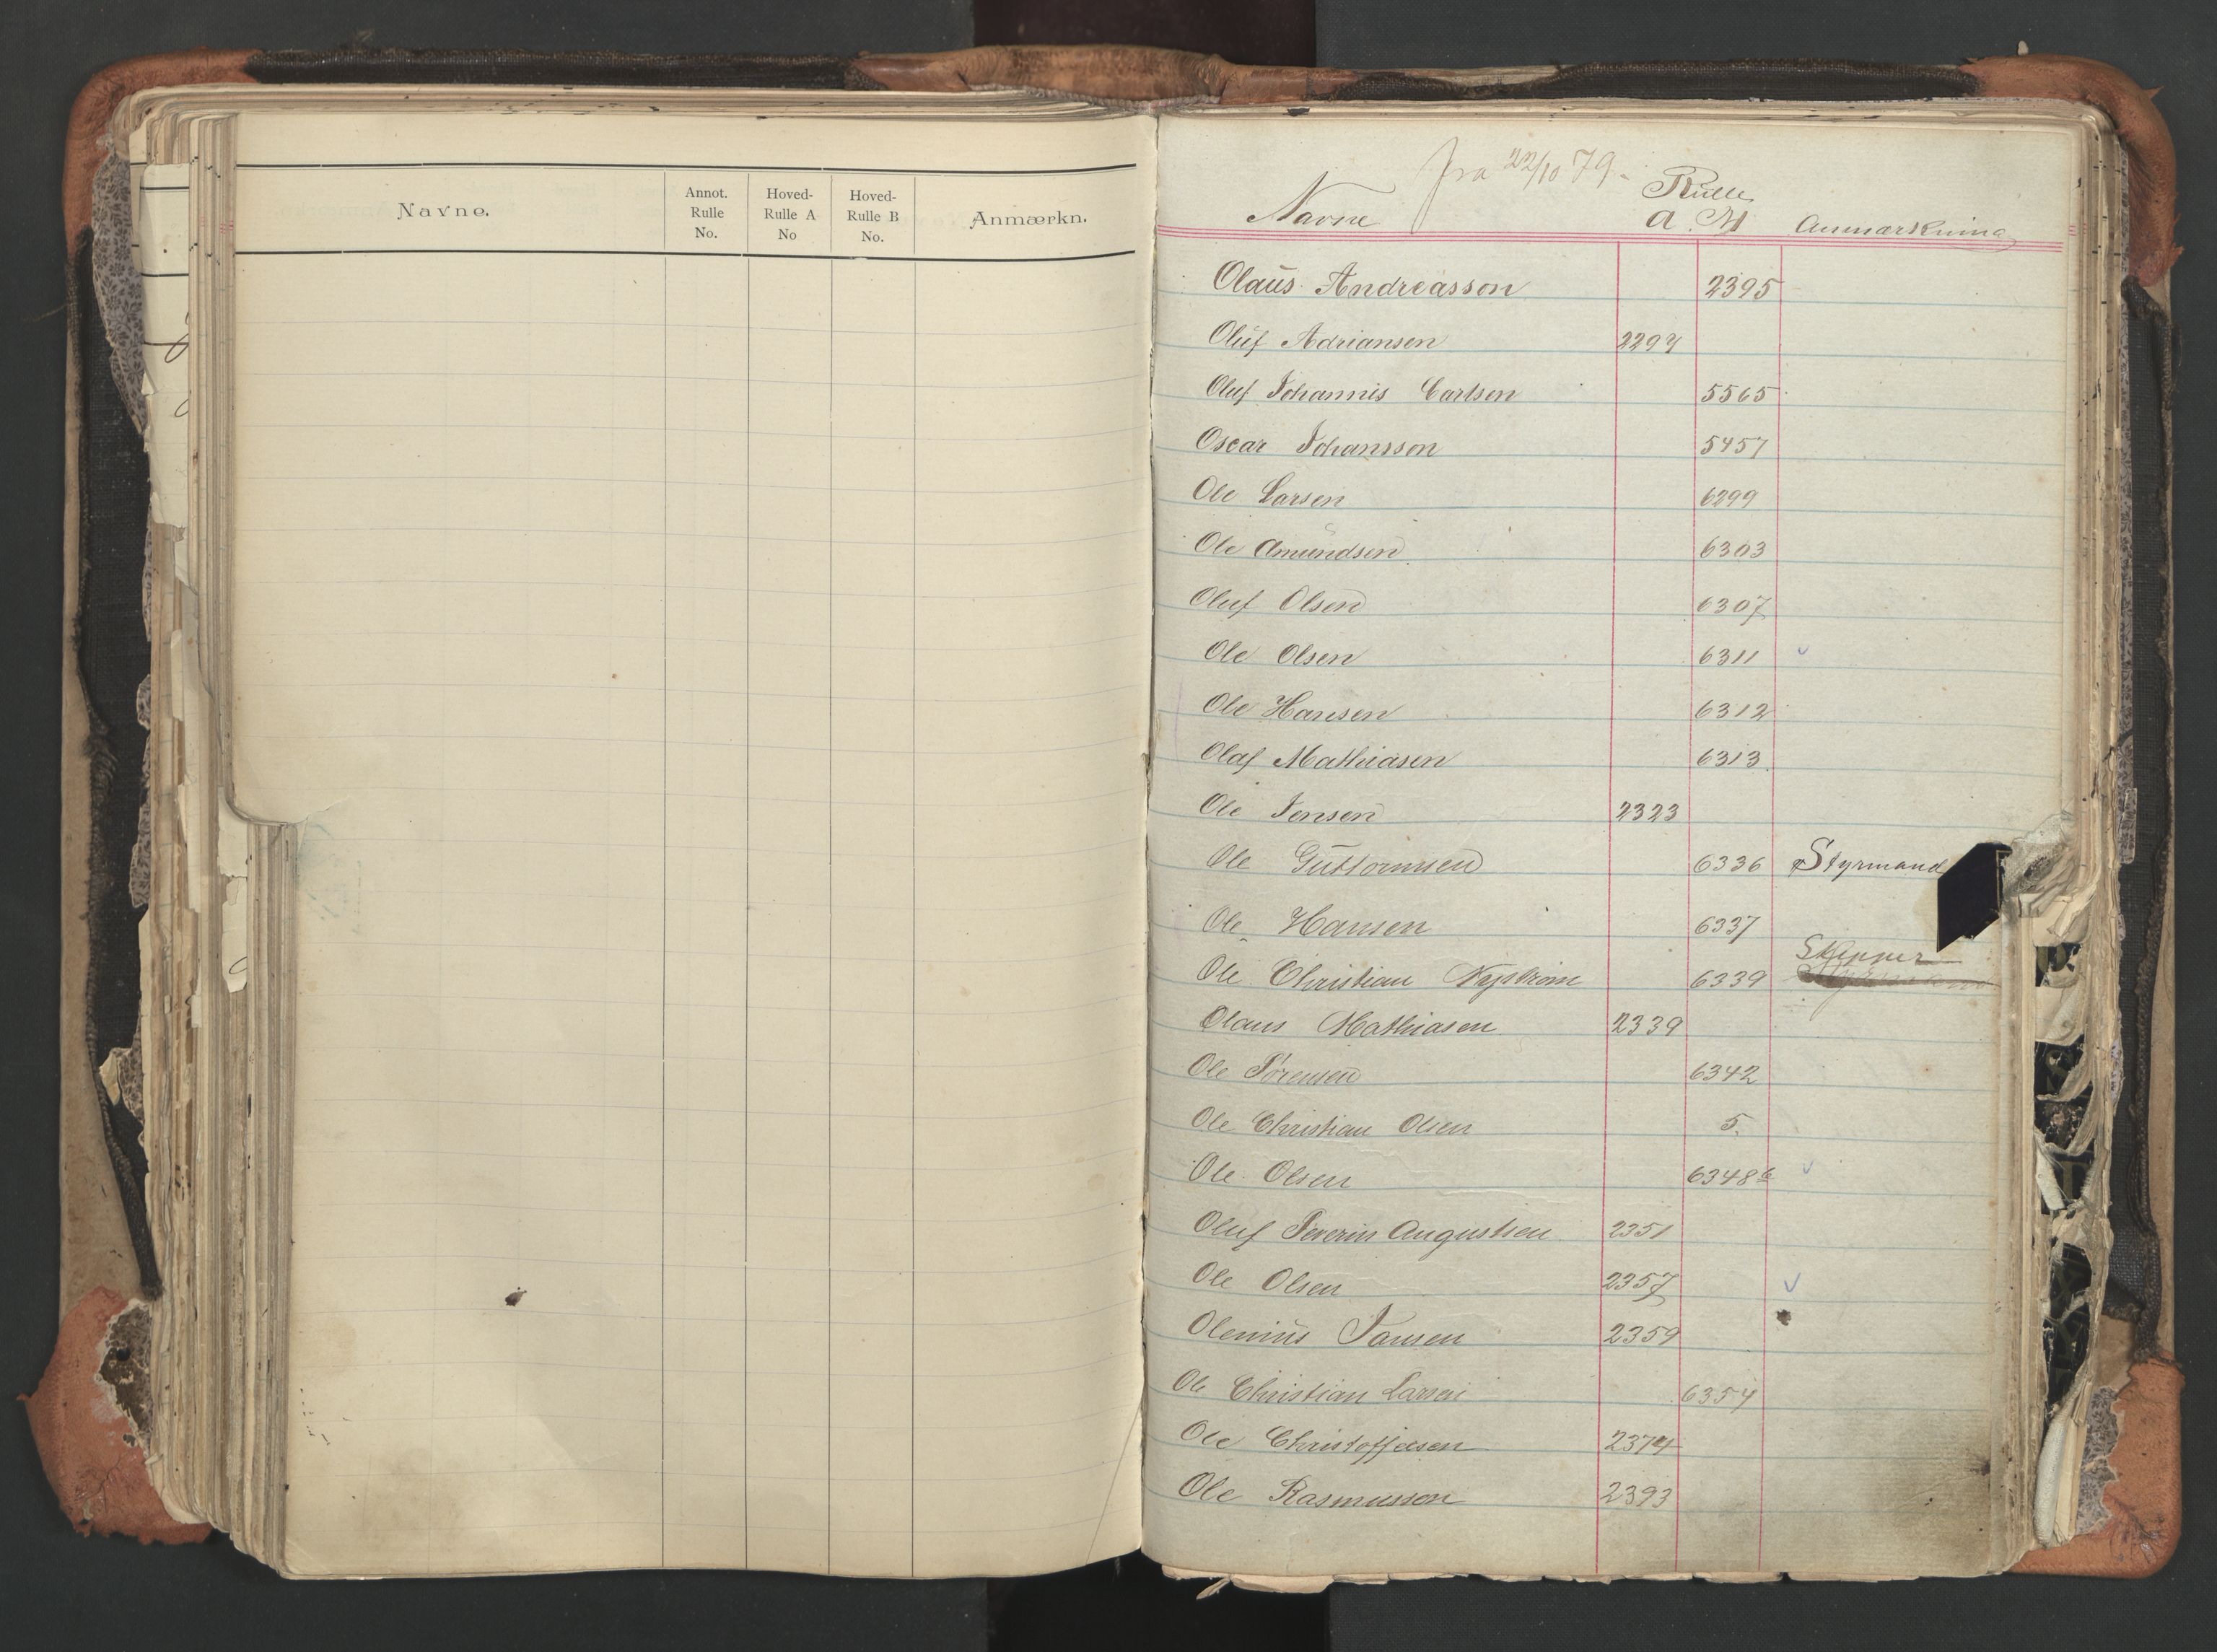 Navne.
Annot. Rulle No.
Hoved-Rulle A No
Hoved-Rulle B No.
Anmærkn.
fra 22/10 79.
Navne Rulle
A. M Anmærkning
Olaus Andreasson 2395
Oluf Adriansen 2297
Oluf Johannis Carlsen 5565
Oscar Johansson 5457
Ole Larsen 6299
Ole Amundsen 6303
Oluf Olsen 6307
Ole Olsen 6311 v
Ole Hansen 6312
Olaf Mathiasen 6313
Ole Jensen 2323
Ole Guttormsen 6336 Styrmand
Ole Hansen 6337
Skipper
Ole Christian Nystrøm 6339
Olaus Mathiasen 2339
Ole Sørensen 6342
Ole Christian Olsen 5.
Ole Olsen 6348 v
Oluf Severin Augustsen 2351
Ole Olsen 2357 v
Olenius Jansen 2359
Ole Christian Larsen 6354
Ole Christoffersen 2374
Ole Rasmusson 2393